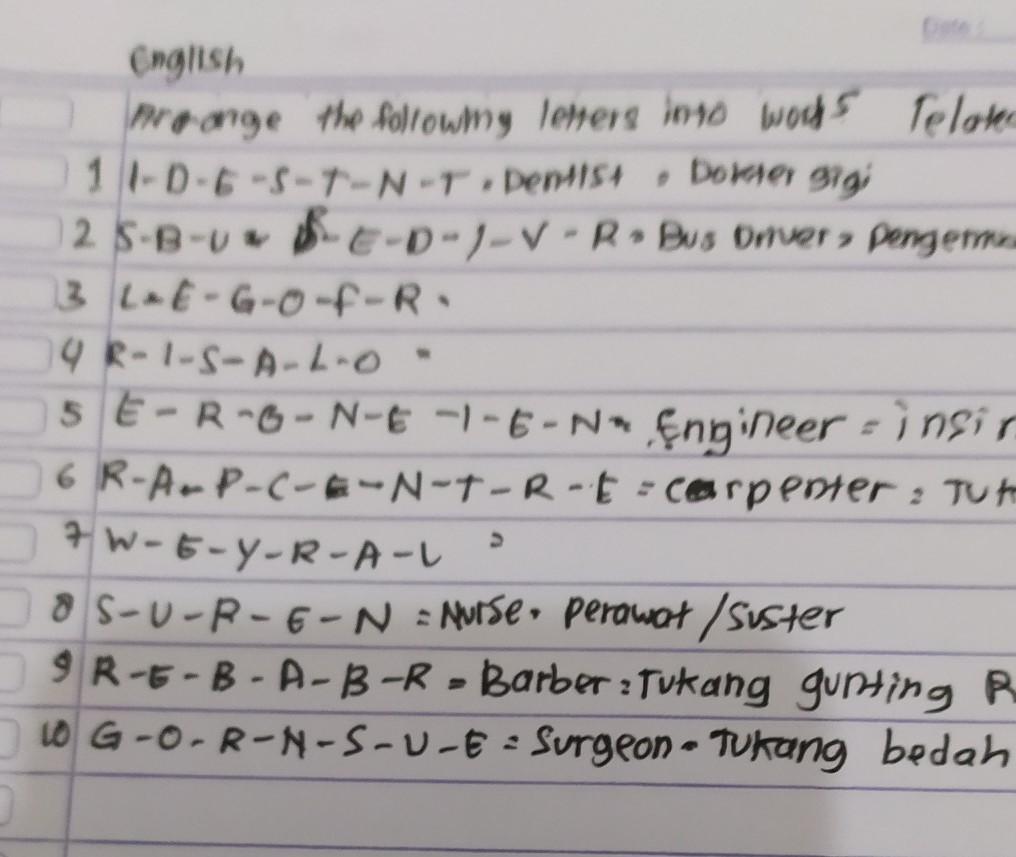 Date :
English
Arrange the following letters into words Telate
1 I-D-E-S-T-N-T. Dentist . Dokter gigi
2 S-B-U = R-E-D-I-V-R = Bus Driver =
3 L-E-G-O-F-R.
4 R-I-S-A-L-O =
5 E-R-G-N-E-I-E-N = Engineer = insin
6 R-A-P-C-E-N-T-R-E = carpenter = Tuk
7 W-E-Y-R-A-L =
8 S-U-R-E-N = Nurse. perawat /suster
9 R-E-B-A-B-R = Barber = Tukang gunting R
10 G-O-R-N-S-U-E = Surgeon = Tukang bedah